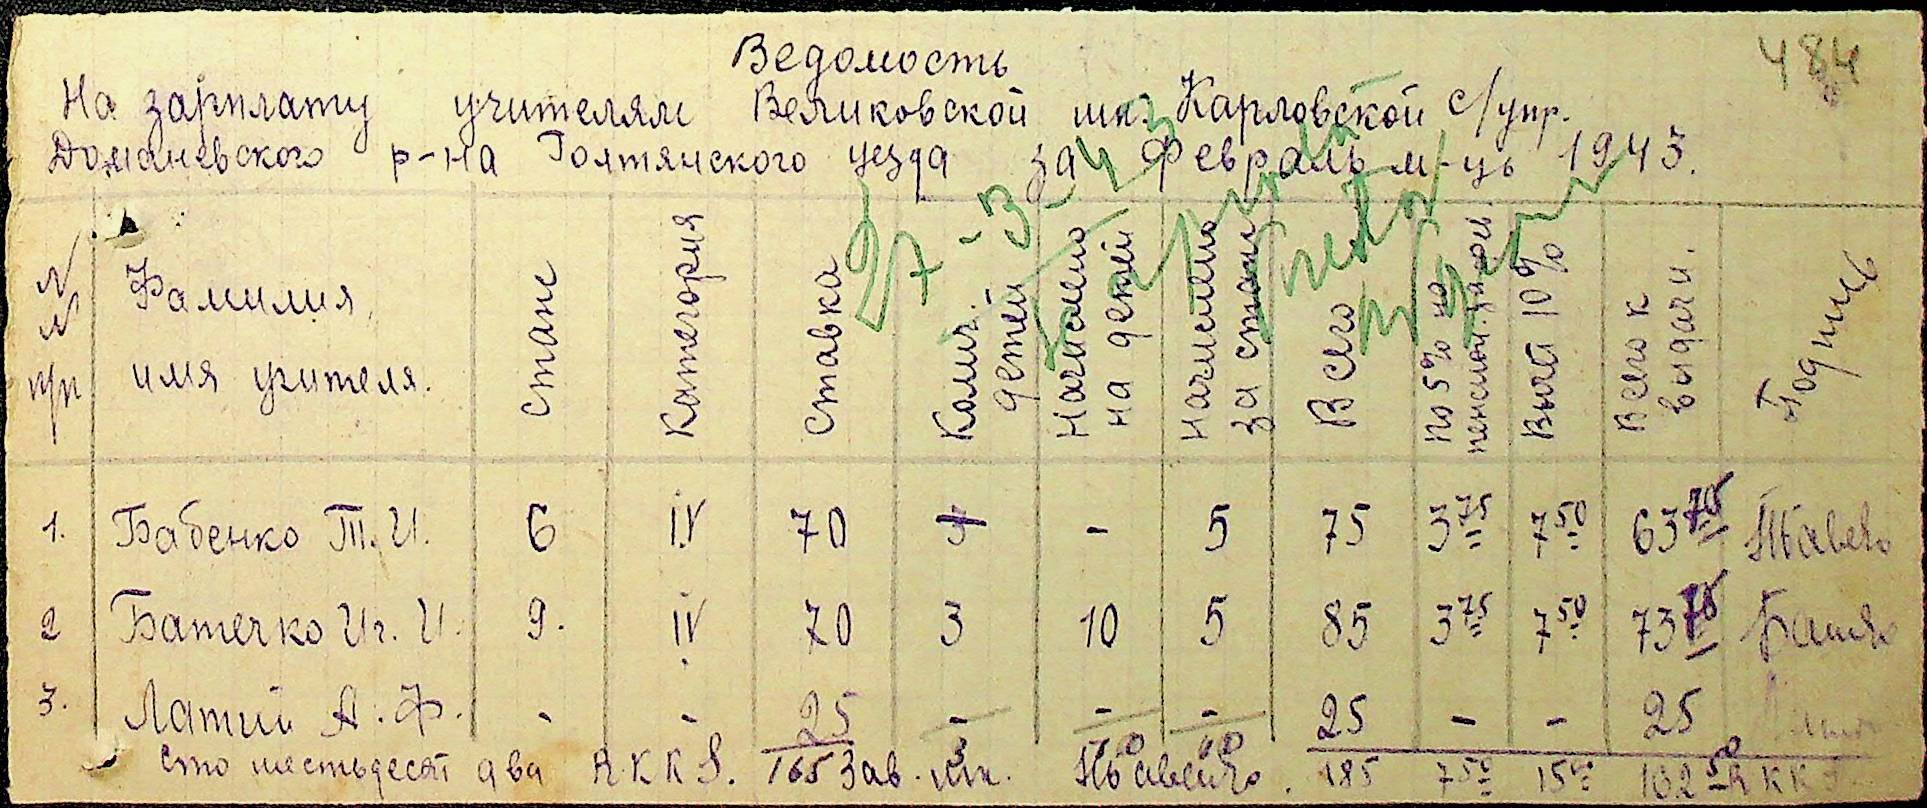 484
Ведомость
На зарплату учителям Великовской шк. Карловской с/упр.
Доманевского р-на Голтянского уезда за Февраль м-ць 1943.
27-3-43
№№ п/п
Фамилия, имя учителя.
Стаж
Категория
Ставка
Колич. детей
Начислено на детей
Начислено за стаж
Всего
По 5% на пенсион.
Вычет 10%
Всего к выдачи.
Подпись
1. Бабенко Т.И. 6 IV 70 - 5 75 3 75 7 50 63 75
2 Батечко И. 9. IV 70 3 10 5 85 3 75 7 50 73 75
3. Латий А.Ф. - - 25 - - - 25 - - 25
Сто шестьдесят два R.K.K.S. 165 3 10 10 185 7 50 15 162 50 RKKS.
Зав. шк.